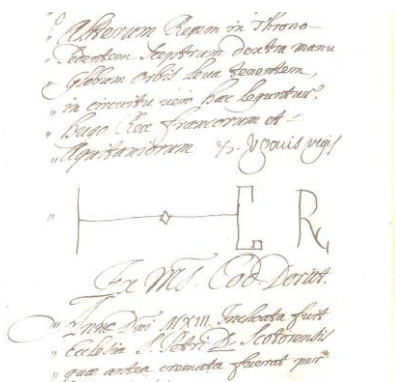 „ Alterum Regem in Throno-
„ Sedentem Sceptrum dextra manu
„ Globum Orbis leva tenentem,
„ in circuitu vero hæc leguntur.
„ Hugo Rex francorum et-
„ Aquitaniorum
„ H E R
Ex Ms. Cod.
„ Anno Dni MXIII. Incoata fuit
„ Ecclesia S. Petri D.
„ quæ antea cremata fuerat per